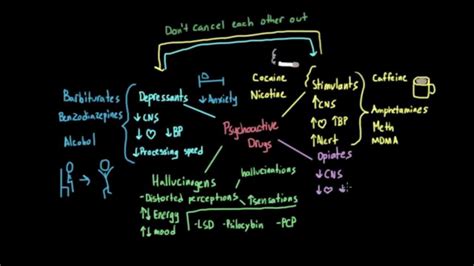 Don't cancel each other out
Barbiturates
Benzodiazepines
Alcohol
Depressants
↓CNS
↓♡ ↓BP
↓Processing speed
↓Anxiety
Cocaine
Nicotine
Stimulants
↑CNS
↑♡ ↑BP
↑Alert
Caffeine
Amphetamines
Meth
MDMA
Psychoactive
Drugs
Opiates
↓CNS
↓♡ ↓
Hallucinogens
hallucinations
-Distorted perceptions
↑sensations
↑↓Energy
↑↓mood
-LSD -Psilocybin -PCP